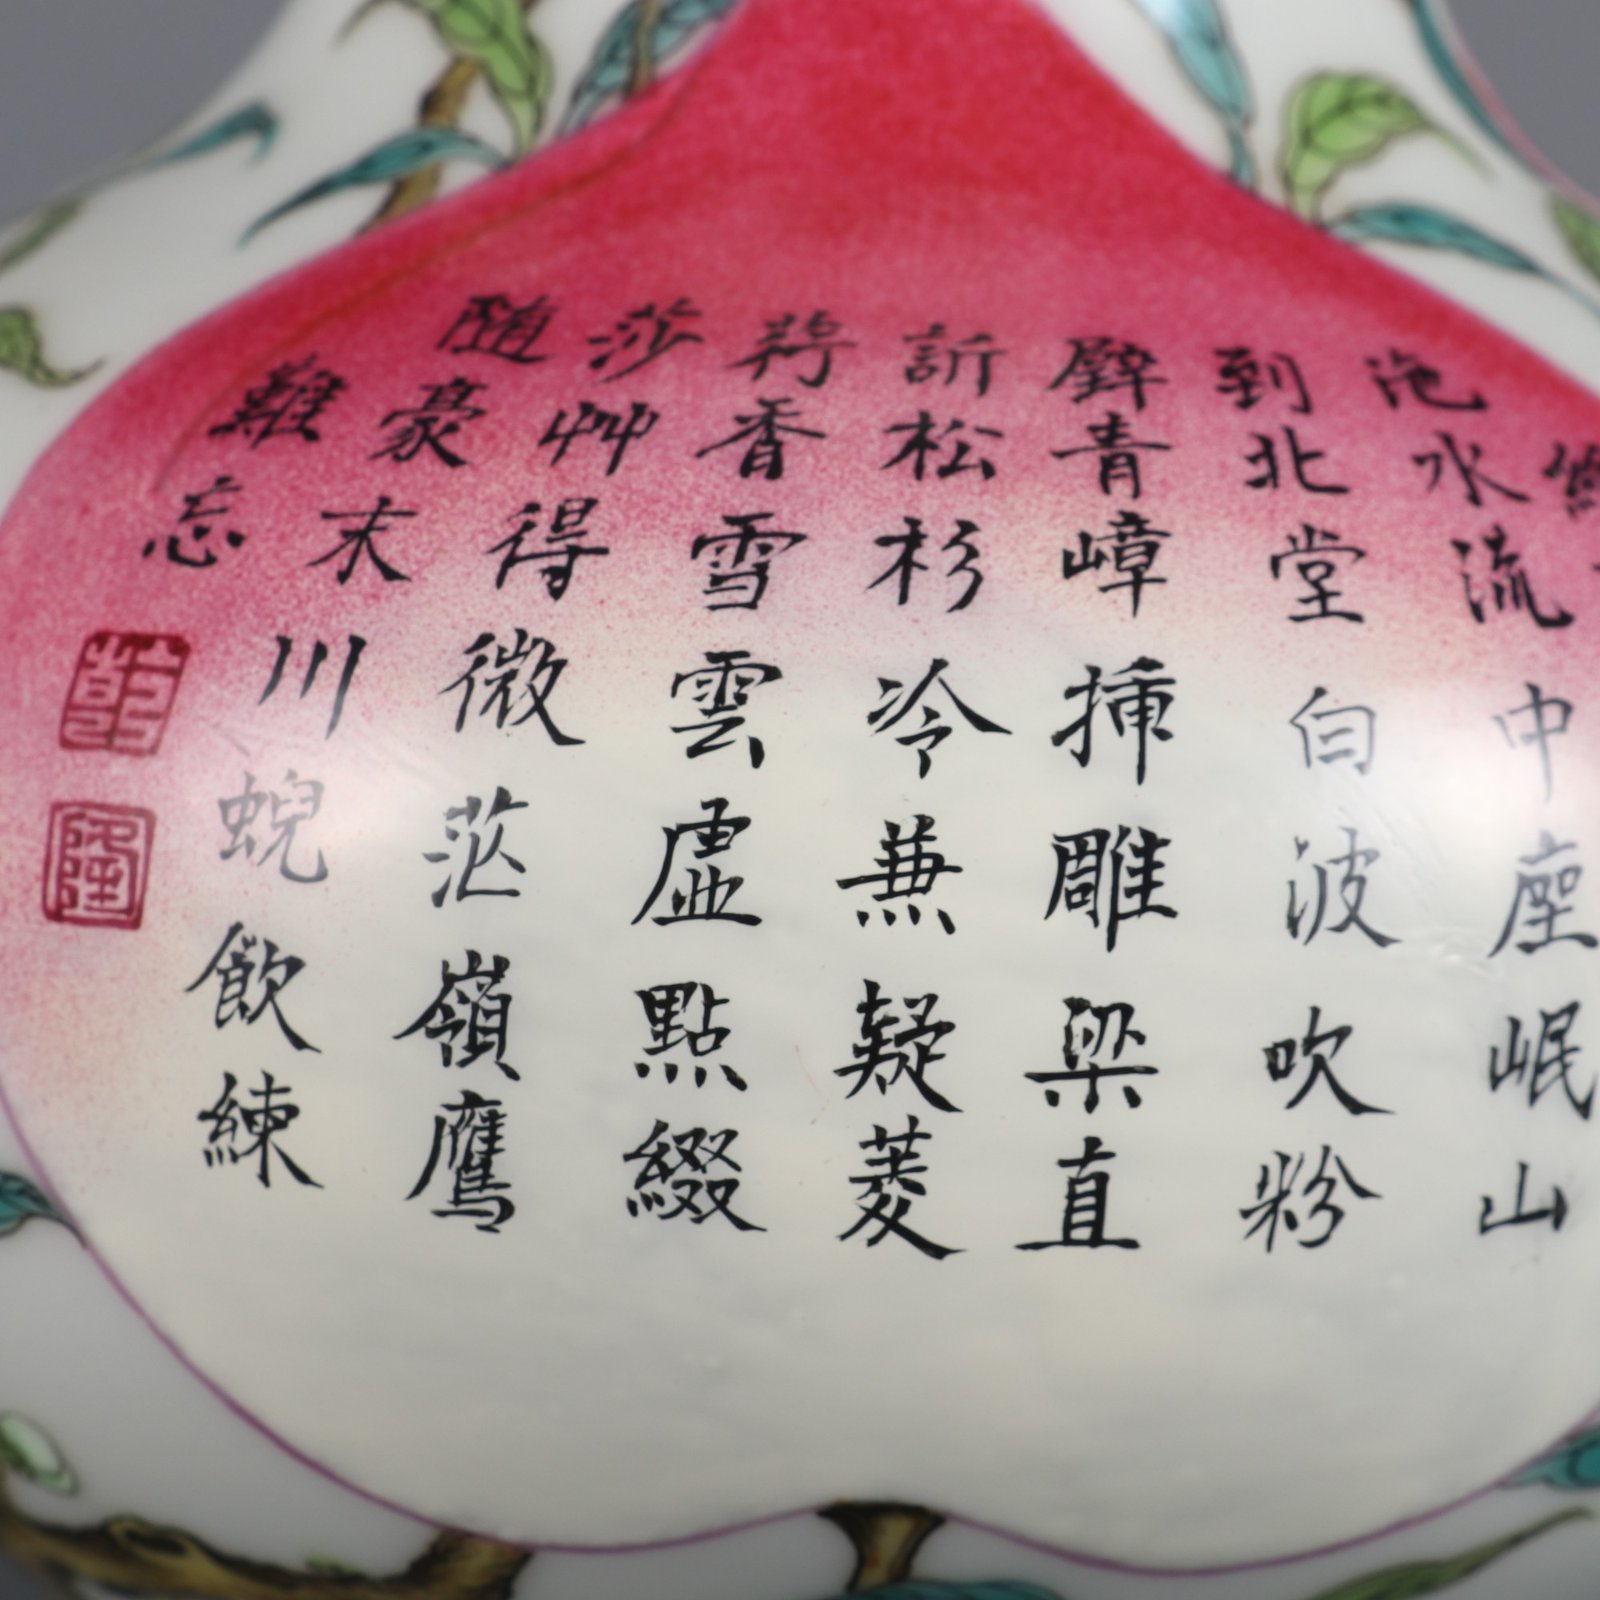 沲水流中座岷山
到北堂白波吹粉
壁青嶂揷雕梁直
訢松杉冷兼疑菱
荇香雪雲虛點綴
莎艸得微茫嶺鷹
随豪末川蜺飲練
難忘
乾
隆